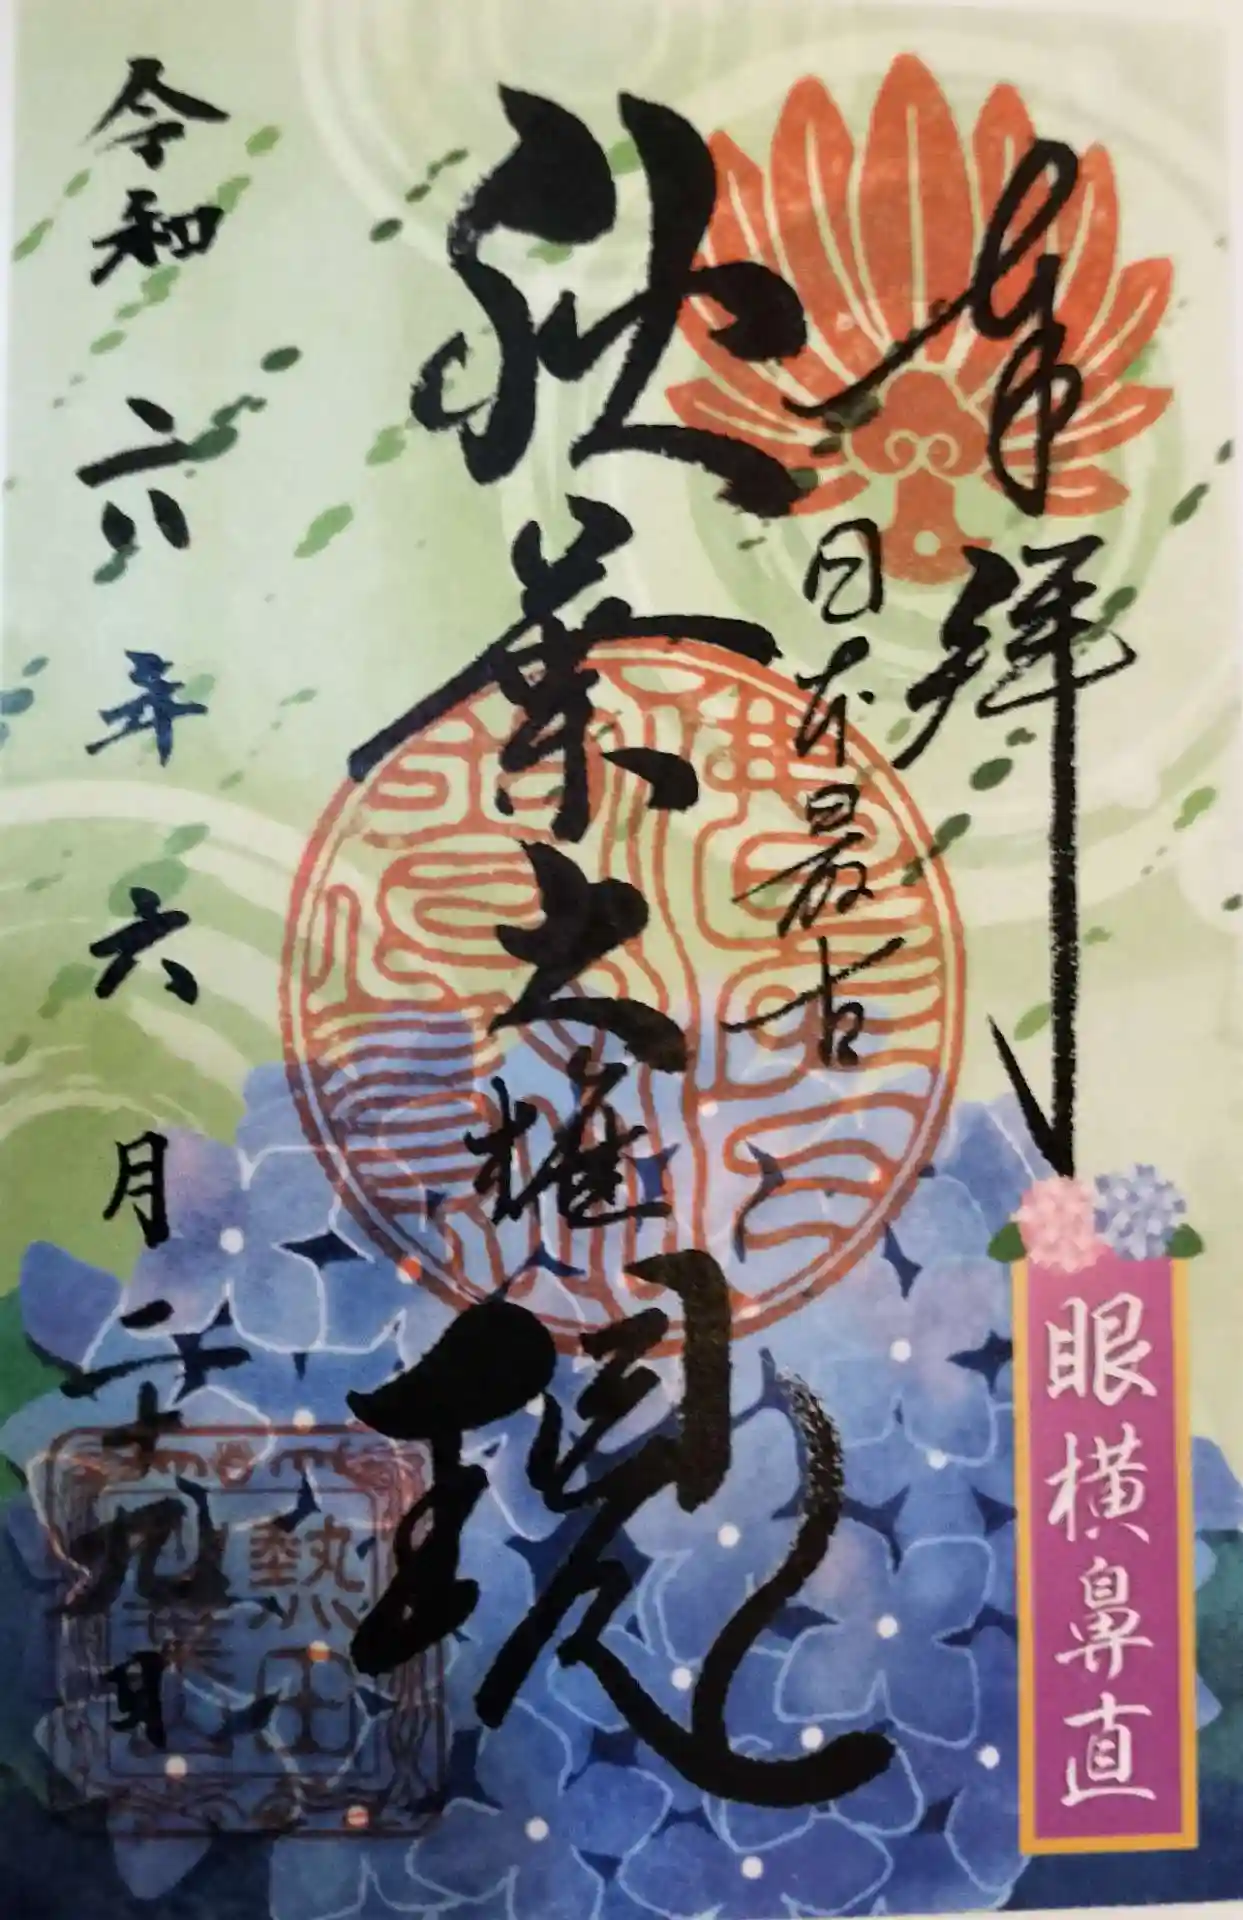 奉拝
日本最古
秋葉大権現
令和六年六月二十九日
眼横鼻直
熱田